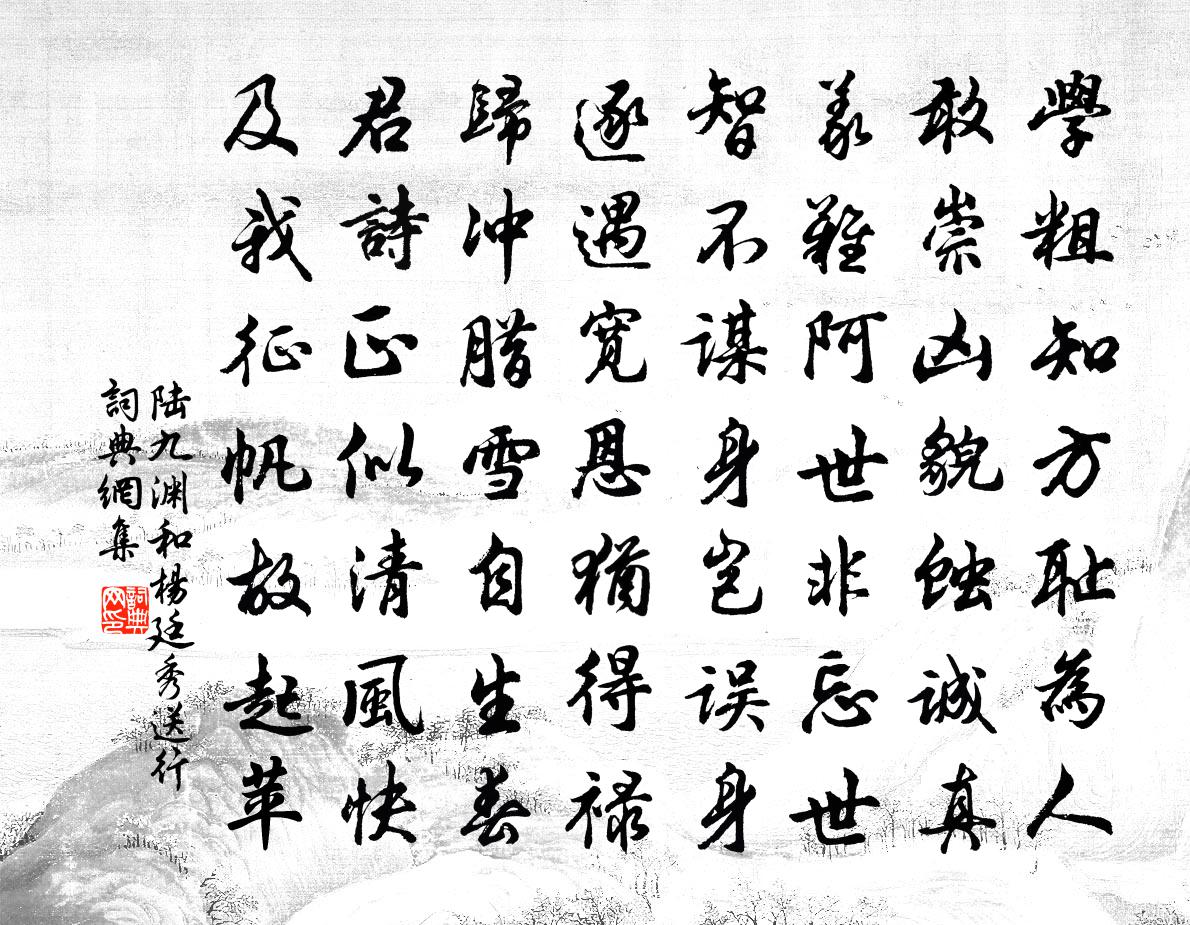 學粗知方耻為人
敢崇凶貌蝕誠真
義難阿世非忘世
智不謀身豈误身
逐遇寛恩猶得禄
歸冲腊雪自生春
君詩正似清風快
及我征帆故起苹
陆九渊和楊廷秀送行
詞典網集
詞典网印